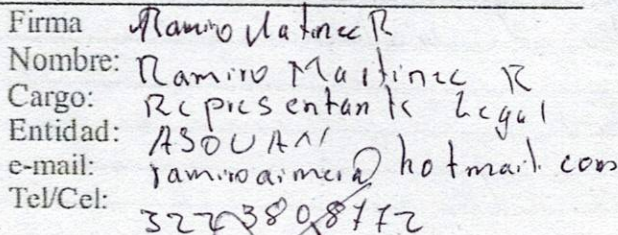 Firma Ramiro Matinez R
Nombre: Ramiro Martinez R
Cargo: Representante Legal
Entidad: ASOUAN
e-mail: ramiroaimera@hotmail.com
Tel/Cel: 3223808772